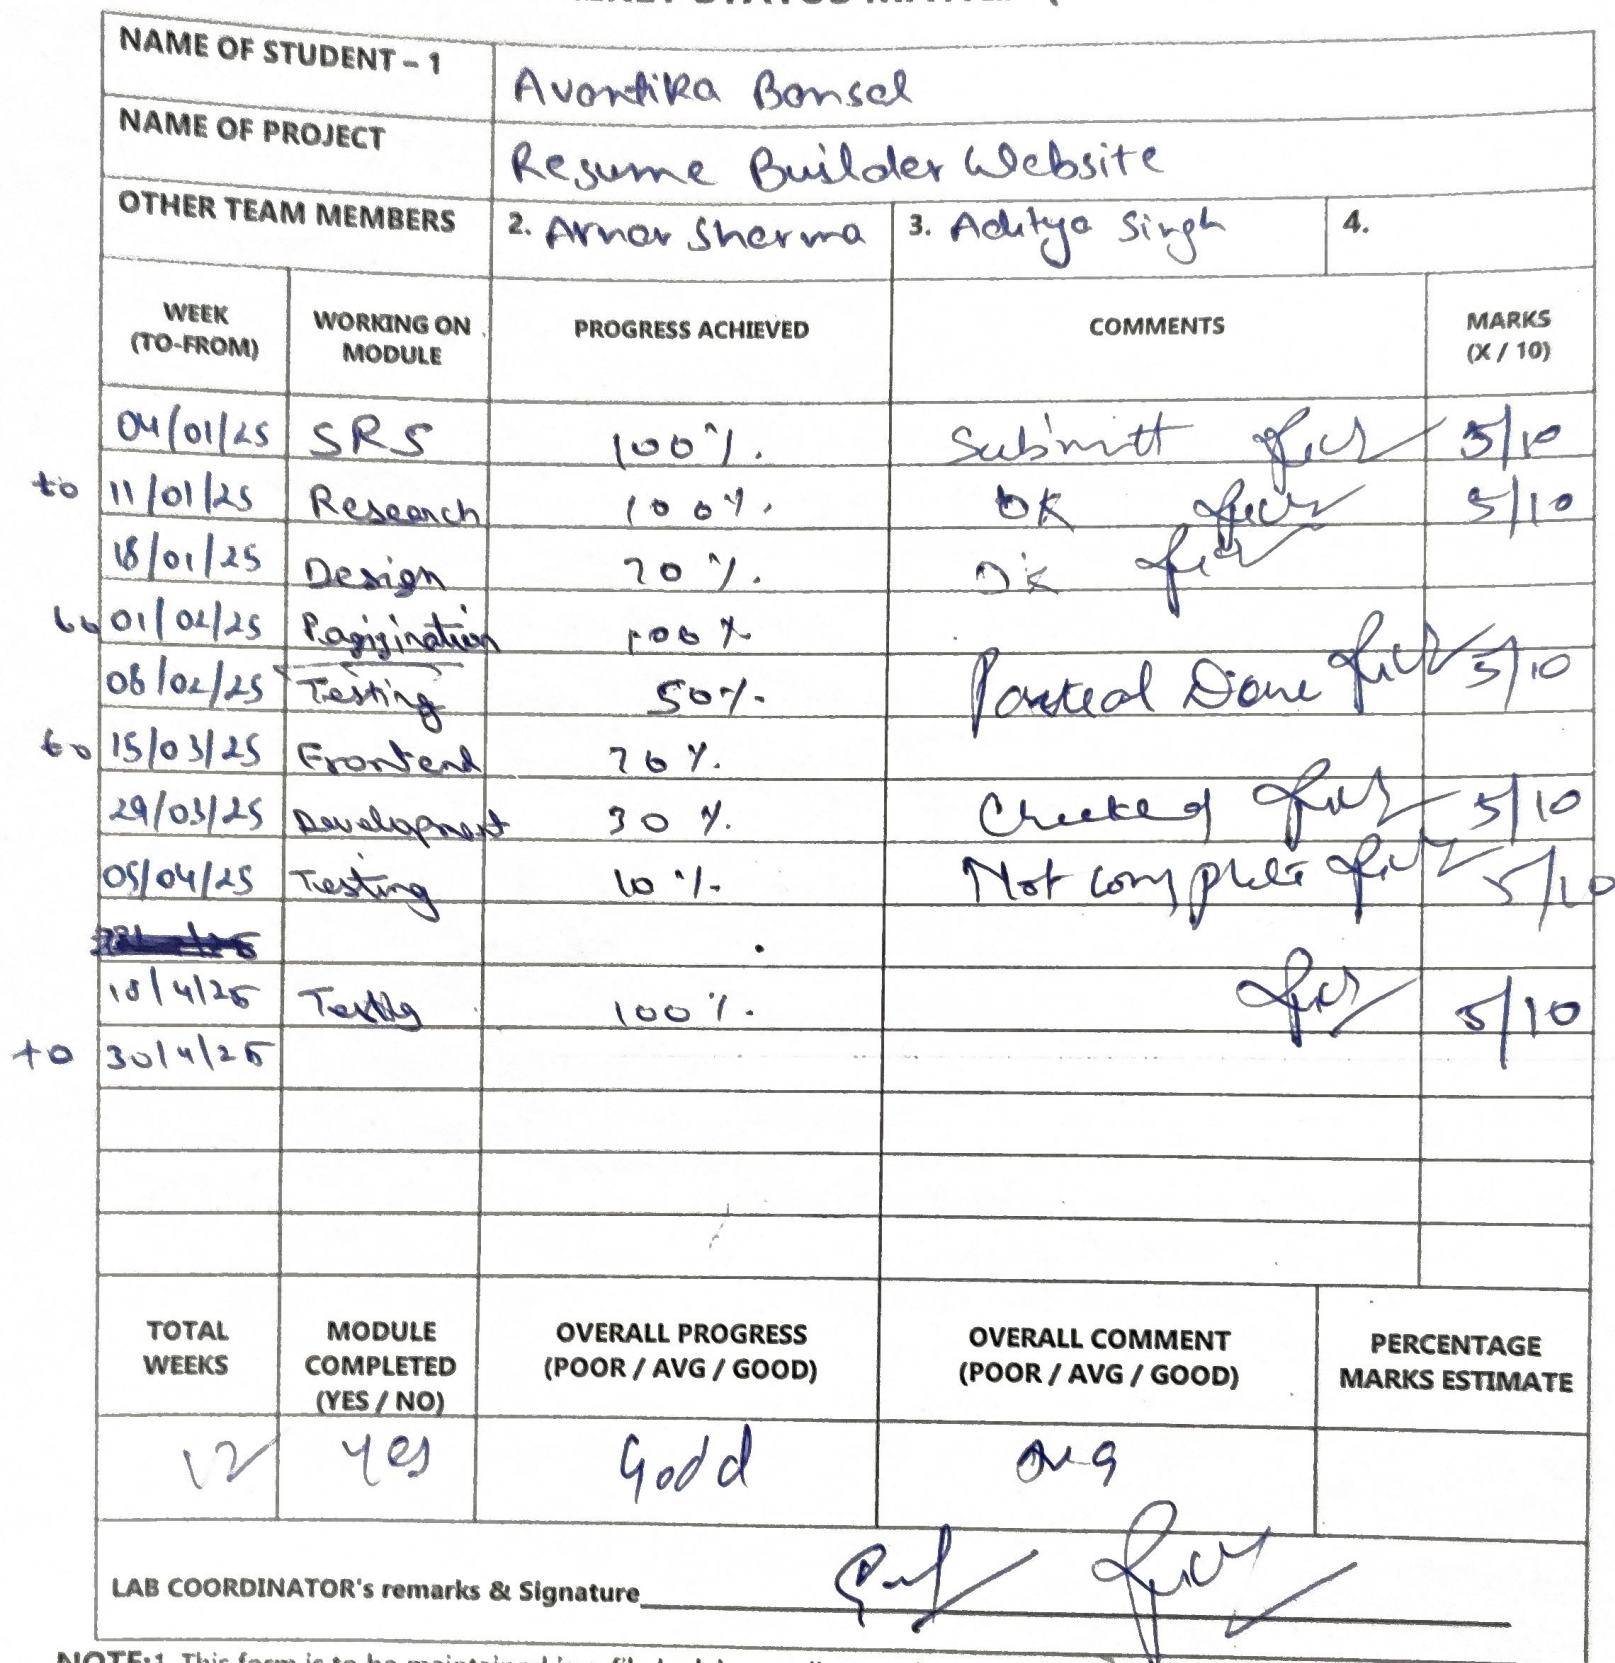 NAME OF STUDENT – 1 Avantika Bansal
NAME OF PROJECT Resume Builder Website
OTHER TEAM MEMBERS 2. Arnav Sharma 3. Aditya Singh 4.
WEEK (TO-FROM) WORKING ON MODULE PROGRESS ACHIEVED COMMENTS MARKS (X / 10)
04/01/25 SRS 100%. Submitt 5/10
to 11/01/25 Research 100%. OK 5/10
18/01/25 Design 70%. OK
to 01/02/25 Pagigination 100%
08/02/25 Testing 50%. Parteal Done 5/10
to 15/03/25 Frontend 70%.
29/03/25 Development 30%. Checked 5/10
05/04/25 Testing 10%. Not complete 5/10
18/4/25 Testing 100%. 5/10
to 30/4/25
TOTAL WEEKS MODULE COMPLETED (YES / NO) OVERALL PROGRESS (POOR / AVG / GOOD) OVERALL COMMENT (POOR / AVG / GOOD) PERCENTAGE MARKS ESTIMATE
12 Yes Godd avg
LAB COORDINATOR's remarks & Signature
NOTE:1. This form is to be maintained